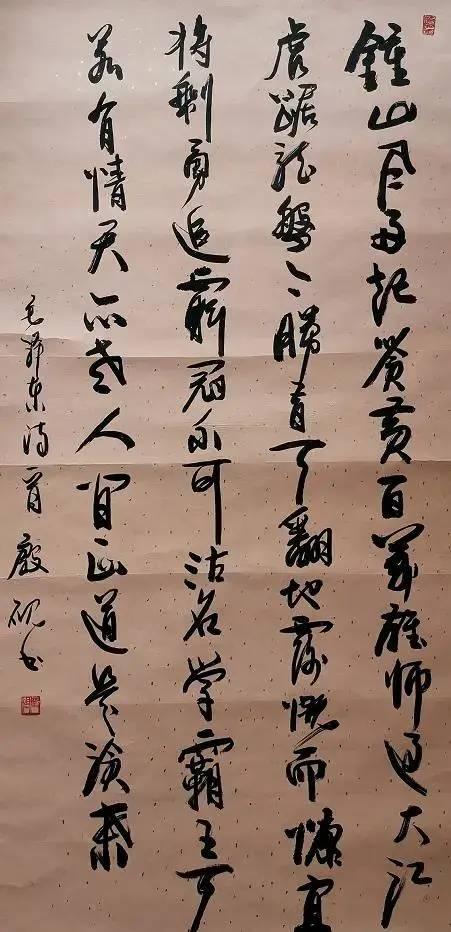 鍾山风雨起蒼黄百萬雄师过大江
虎踞龙盤今勝昔天翻地覆慨而慷宜
将剩勇追窮寇不可沽名学霸王天
若有情天亦老人间正道是滄桑
毛泽东诗一首 殷砚书